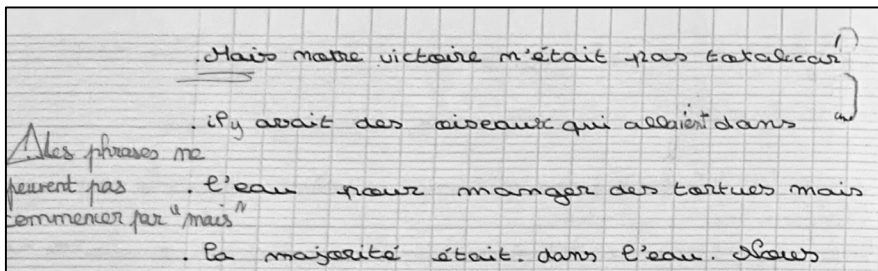 .Mais notre victoire n'était pas totale car
.il y avait des oiseaux qui allaient dans
⚠ les phrases ne
peuvent pas
commencer par "mais"
.l'eau pour manger des tortues mais
.la majorité était. dans l'eau. Nous